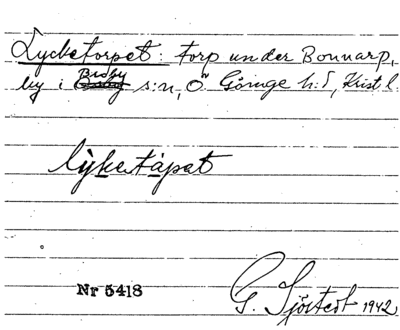 Lycketorpet: torp under Bonnarp,
by i Broby s:n, Ö. Göinge h:d, Krist l.
lỳketåpat
Nr 5418
G. Sjöstedt 1942